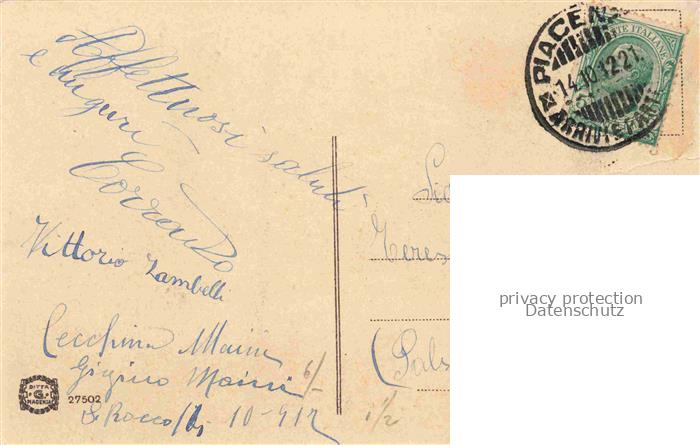 Affettuosi saluti
e auguri
Vittorio Zambelli
Cecchina Maini
Gigino Maini
S. Rocco 10-912
6/-
1/2
DITTA
G.
MAGENTA
27502
PIACENZA
14.10.12.21
ARRIVI E PART
STE ITALIANE
Teres
privacy protection
Datenschutz